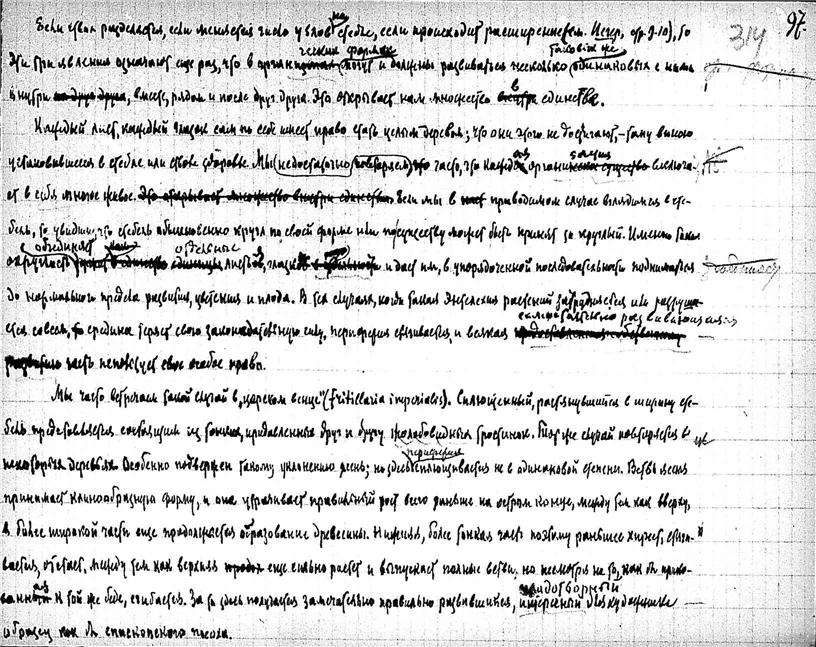 97.
314
Если ствол разделяется, если меняется число узлов на стебле, если происходит расширение стр. 9-10), то
эти три явления означают еще раз, что в органических формах могут и должны развиваться несколько одинаковых таковых же
внутри, вместе, рядом и после друг друга. Это открывает нам множество в единстве.
Каждый лист, каждый глазок сам по себе имеет право стать целым деревом; что они этого не достигают, – тому виною
установившееся в стебле или стволе здоровье. Мы недостаточно повторяем, что часто, что каждая организация включа-
ет в себя многое живое. Это открывает множество внутри единства. Если мы в приводимом случае вглядимся в сте-
бель, то увидим, что стебель обыкновенно кругл по своей форме или по существу может быть принят за круглый. Именно такая
округлость объединяет как единицы отдельные листья, глазки и дает им, в упорядоченной последовательности подниматься
до нормального предела развития, цветения и плода. В тех случаях, когда такая энтелехия растений затрудняется или разруша-
ется совсем, то середина теряет свою законодательную силу, периферия сживается, и всякая самостоятельно развивающаяся
часть использует свое особое право.
Мы часто встречаем такой случай в „царском венце“ (fritillaria imperialis). Сплющенный, растянувшийся в ширину сте-
бель представляется состоящим из тонких, придавленных друг к другу желобовидных тростинок. Тот же случай повторяется в
некоторых деревьях. Особенно подвержен такому уклонению ясень; но здесь периферия сплющивается не в одинаковой степени. Ветвь ясеня
принимает клинообразную форму, и она утрачивает правильный рост всего раньше на остром конце, между тем как вверху,
в более широкой части еще продолжается образование древесины. Нижняя, более тонкая часть поэтому раньше хиреет, стяги-
вается, отстает, между тем как верхняя еще сильно растет и выпускает полные ветви, но несмотря на то, как бы прико-
ванная к той же беде, сгибается. За то здесь получается замечательно правильно развившийся, плодотворный для художника
образец как бы епископского посоха.